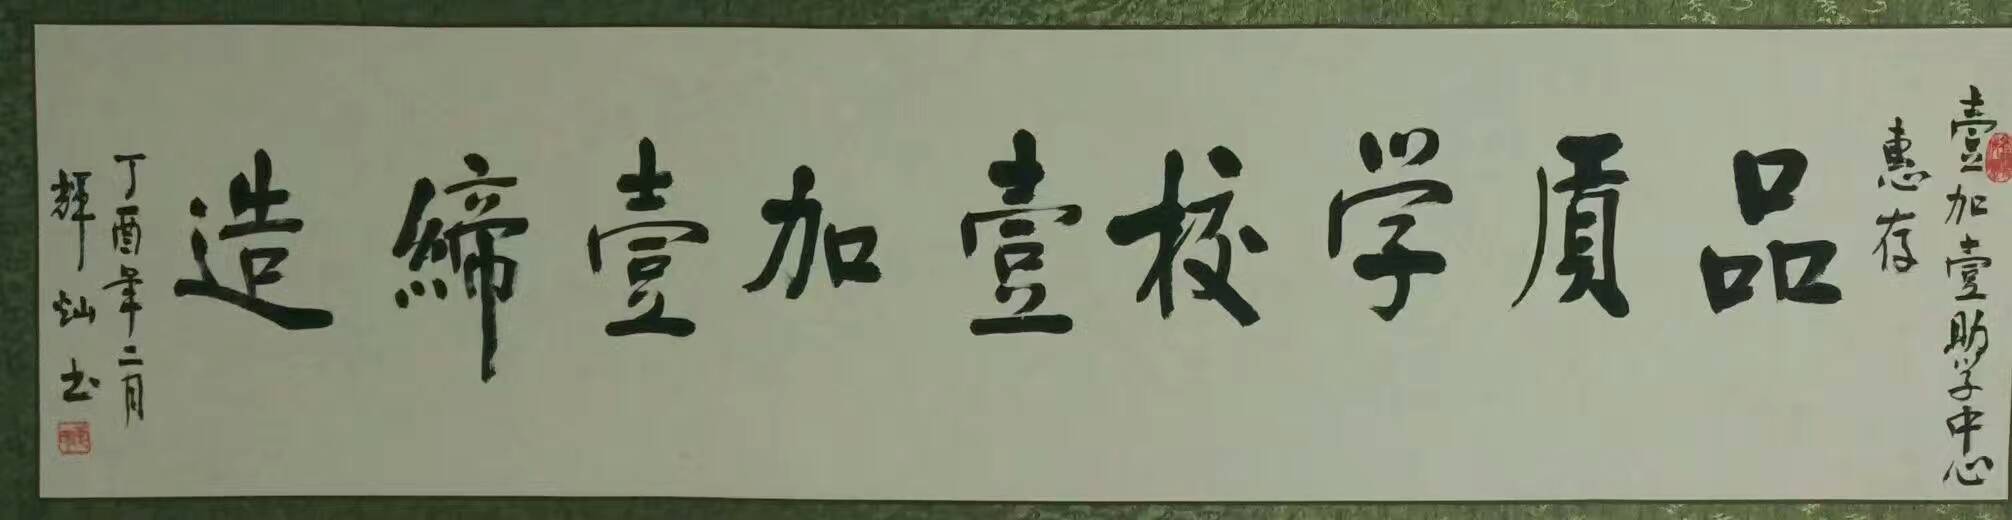 壹加壹助学中心
惠存
品质学校壹加壹缔造
丁酉年二月
辉灿书